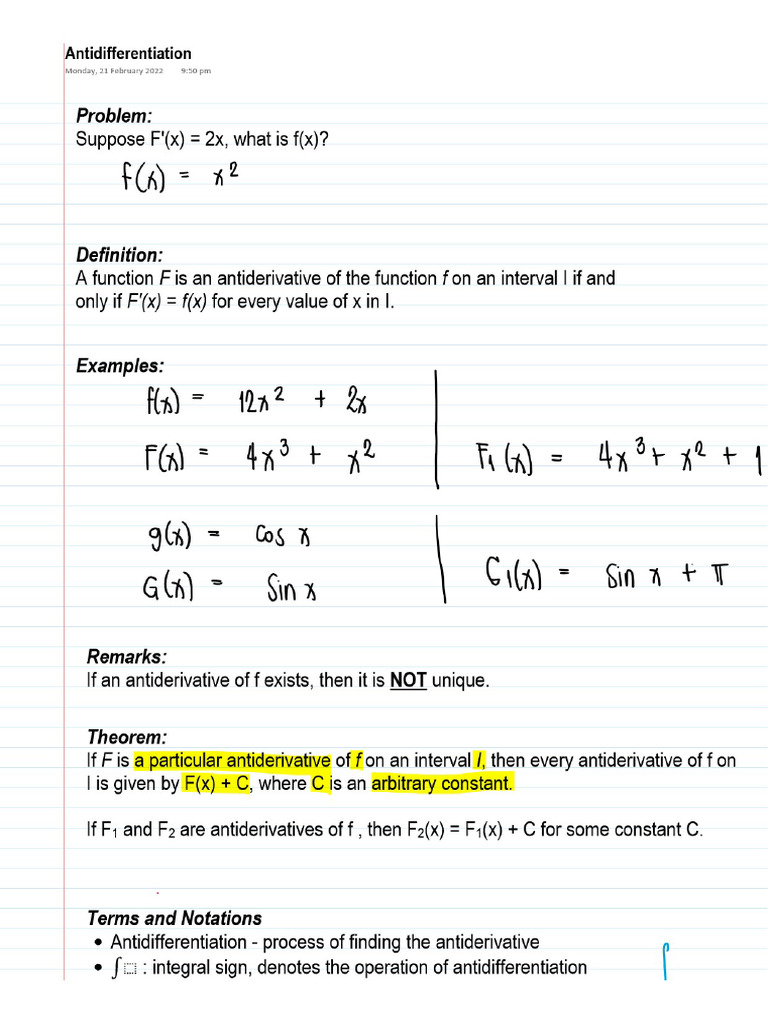 Antidifferentiation
Monday, 21 February 2022 9:50 pm
Problem:
Suppose F'(x) = 2x, what is f(x)?
f(x) = x²
Definition:
A function F is an antiderivative of the function f on an interval I if and
only if F'(x) = f(x) for every value of x in I.
Examples:
f(x) = 12x² + 2x
F(x) = 4x³ + x² F₁(x) = 4x³ + x² + 1
g(x) = cos x
G(x) = Sin x G₁(x) = Sin x + π
Remarks:
If an antiderivative of f exists, then it is NOT unique.
Theorem:
If F is a particular antiderivative of f on an interval I, then every antiderivative of f on
I is given by F(x) + C, where C is an arbitrary constant.
If F₁ and F₂ are antiderivatives of f , then F₂(x) = F₁(x) + C for some constant C.
Terms and Notations
• Antidifferentiation - process of finding the antiderivative
• ∫⬚ : integral sign, denotes the operation of antidifferentiation ∫